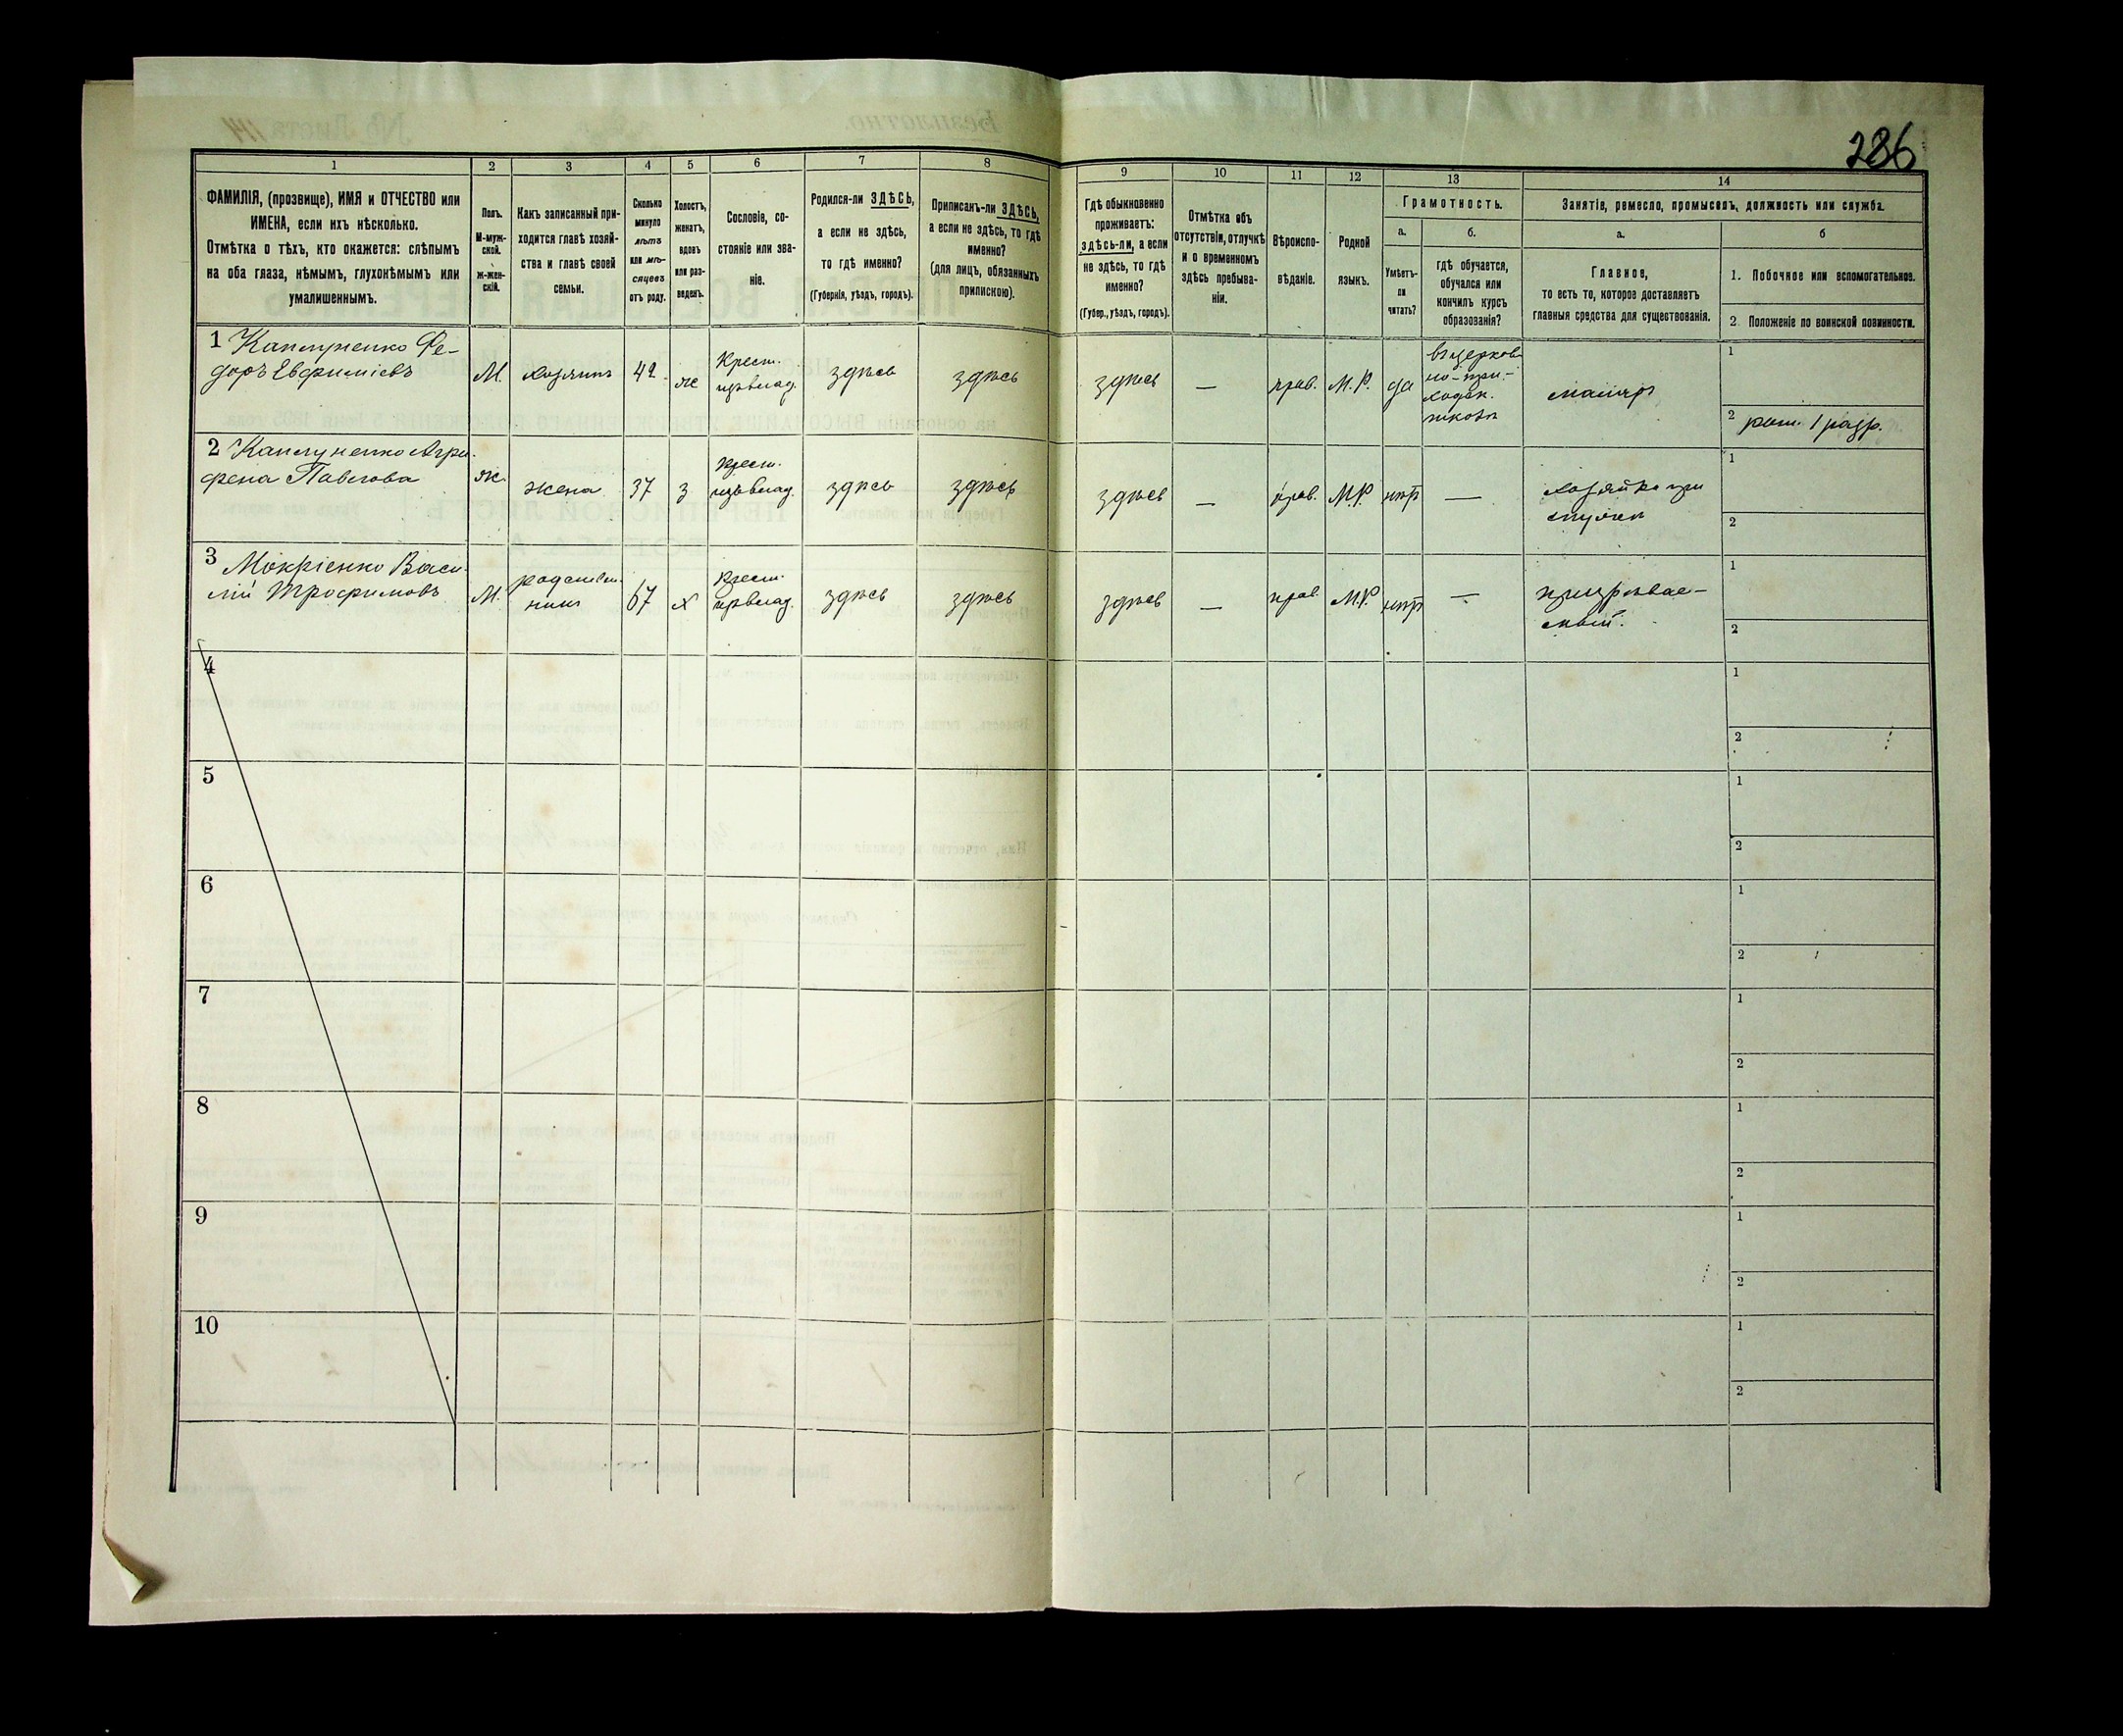 286
1 2 3 4 5 6 7 8 9 10 11 12 13 14
ФАМИЛІЯ, (прозвище), ИМЯ и ОТЧЕСТВО или
ИМЕНА, если ихъ нѣсколько.
Отмѣтка о тѣхъ, кто окажется: слѣпымъ
на оба глаза, нѣмымъ, глухонѣмымъ или
умалишеннымъ.
Полъ.
М-муж-
ской.
Ж-жен-
скій.
Какъ записанный при-
ходится главѣ хозяй-
ства и главѣ своей
семьи.
Сколько
минуло
лѣтъ
или мѣ-
сяцевъ
отъ роду.
Холостъ,
женатъ,
вдовъ
или раз-
веденъ.
Сословіе, со-
стояніе или зва-
ніе.
Родился-ли ЗДѢСЬ,
а если не здѣсь,
то гдѣ именно?
(Губернія, уѣздъ, городъ).
Приписанъ-ли ЗДѢСЬ,
а если не здѣсь, то гдѣ
именно?
(для лицъ, обязанныхъ
припискою).
Гдѣ обыкновенно
проживаетъ:
здѣсь-ли, а если
не здѣсь, то гдѣ
именно?
(Губер., уѣздъ, городъ).
Отмѣтка объ
отсутствіи, отлучкѣ
и о временномъ
здѣсь пребыва-
ніи.
Вѣроиспо-
вѣданіе.
Родной
языкъ.
Грамотность.
а. б.
Умѣетъ-
ли
читать?
гдѣ обучается,
обучался или
кончилъ курсъ
образованія?
Занятіе, ремесло, промыселъ, должность или служба.
а. б
Главное,
то есть то, которое доставляетъ
главныя средства для существованія.
1. Побочное или вспомогательное.
2. Положеніе по воинской повинности.
1 Каплуненко Фе-
доръ Евфиміевъ
М. хозяинъ 42 ж
Крест.
здѣсь здѣсь здѣсь — прав. М.Р. да
въ церков-
но-при-
ходск.
школѣ
маляръ
1
2 рат. 1 разр.
2 Каплуненко Агри-
фена Павлова
ж. жена 37 з
Крест.
здѣсь здѣсь здѣсь — прав. М.Р. нѣтъ —
хозяйка при
мужѣ
1
2
3 Мокріенко Васи-
лій Трофимовъ
М.
родствен-
никъ
67 х
Крест.
здѣсь здѣсь здѣсь — прав. М.Р. нѣтъ —
призрѣвае-
мый.
1
2
4
1
2
5
1
2
6
1
2
7
1
2
8
1
2
9
1
2
10
1
2